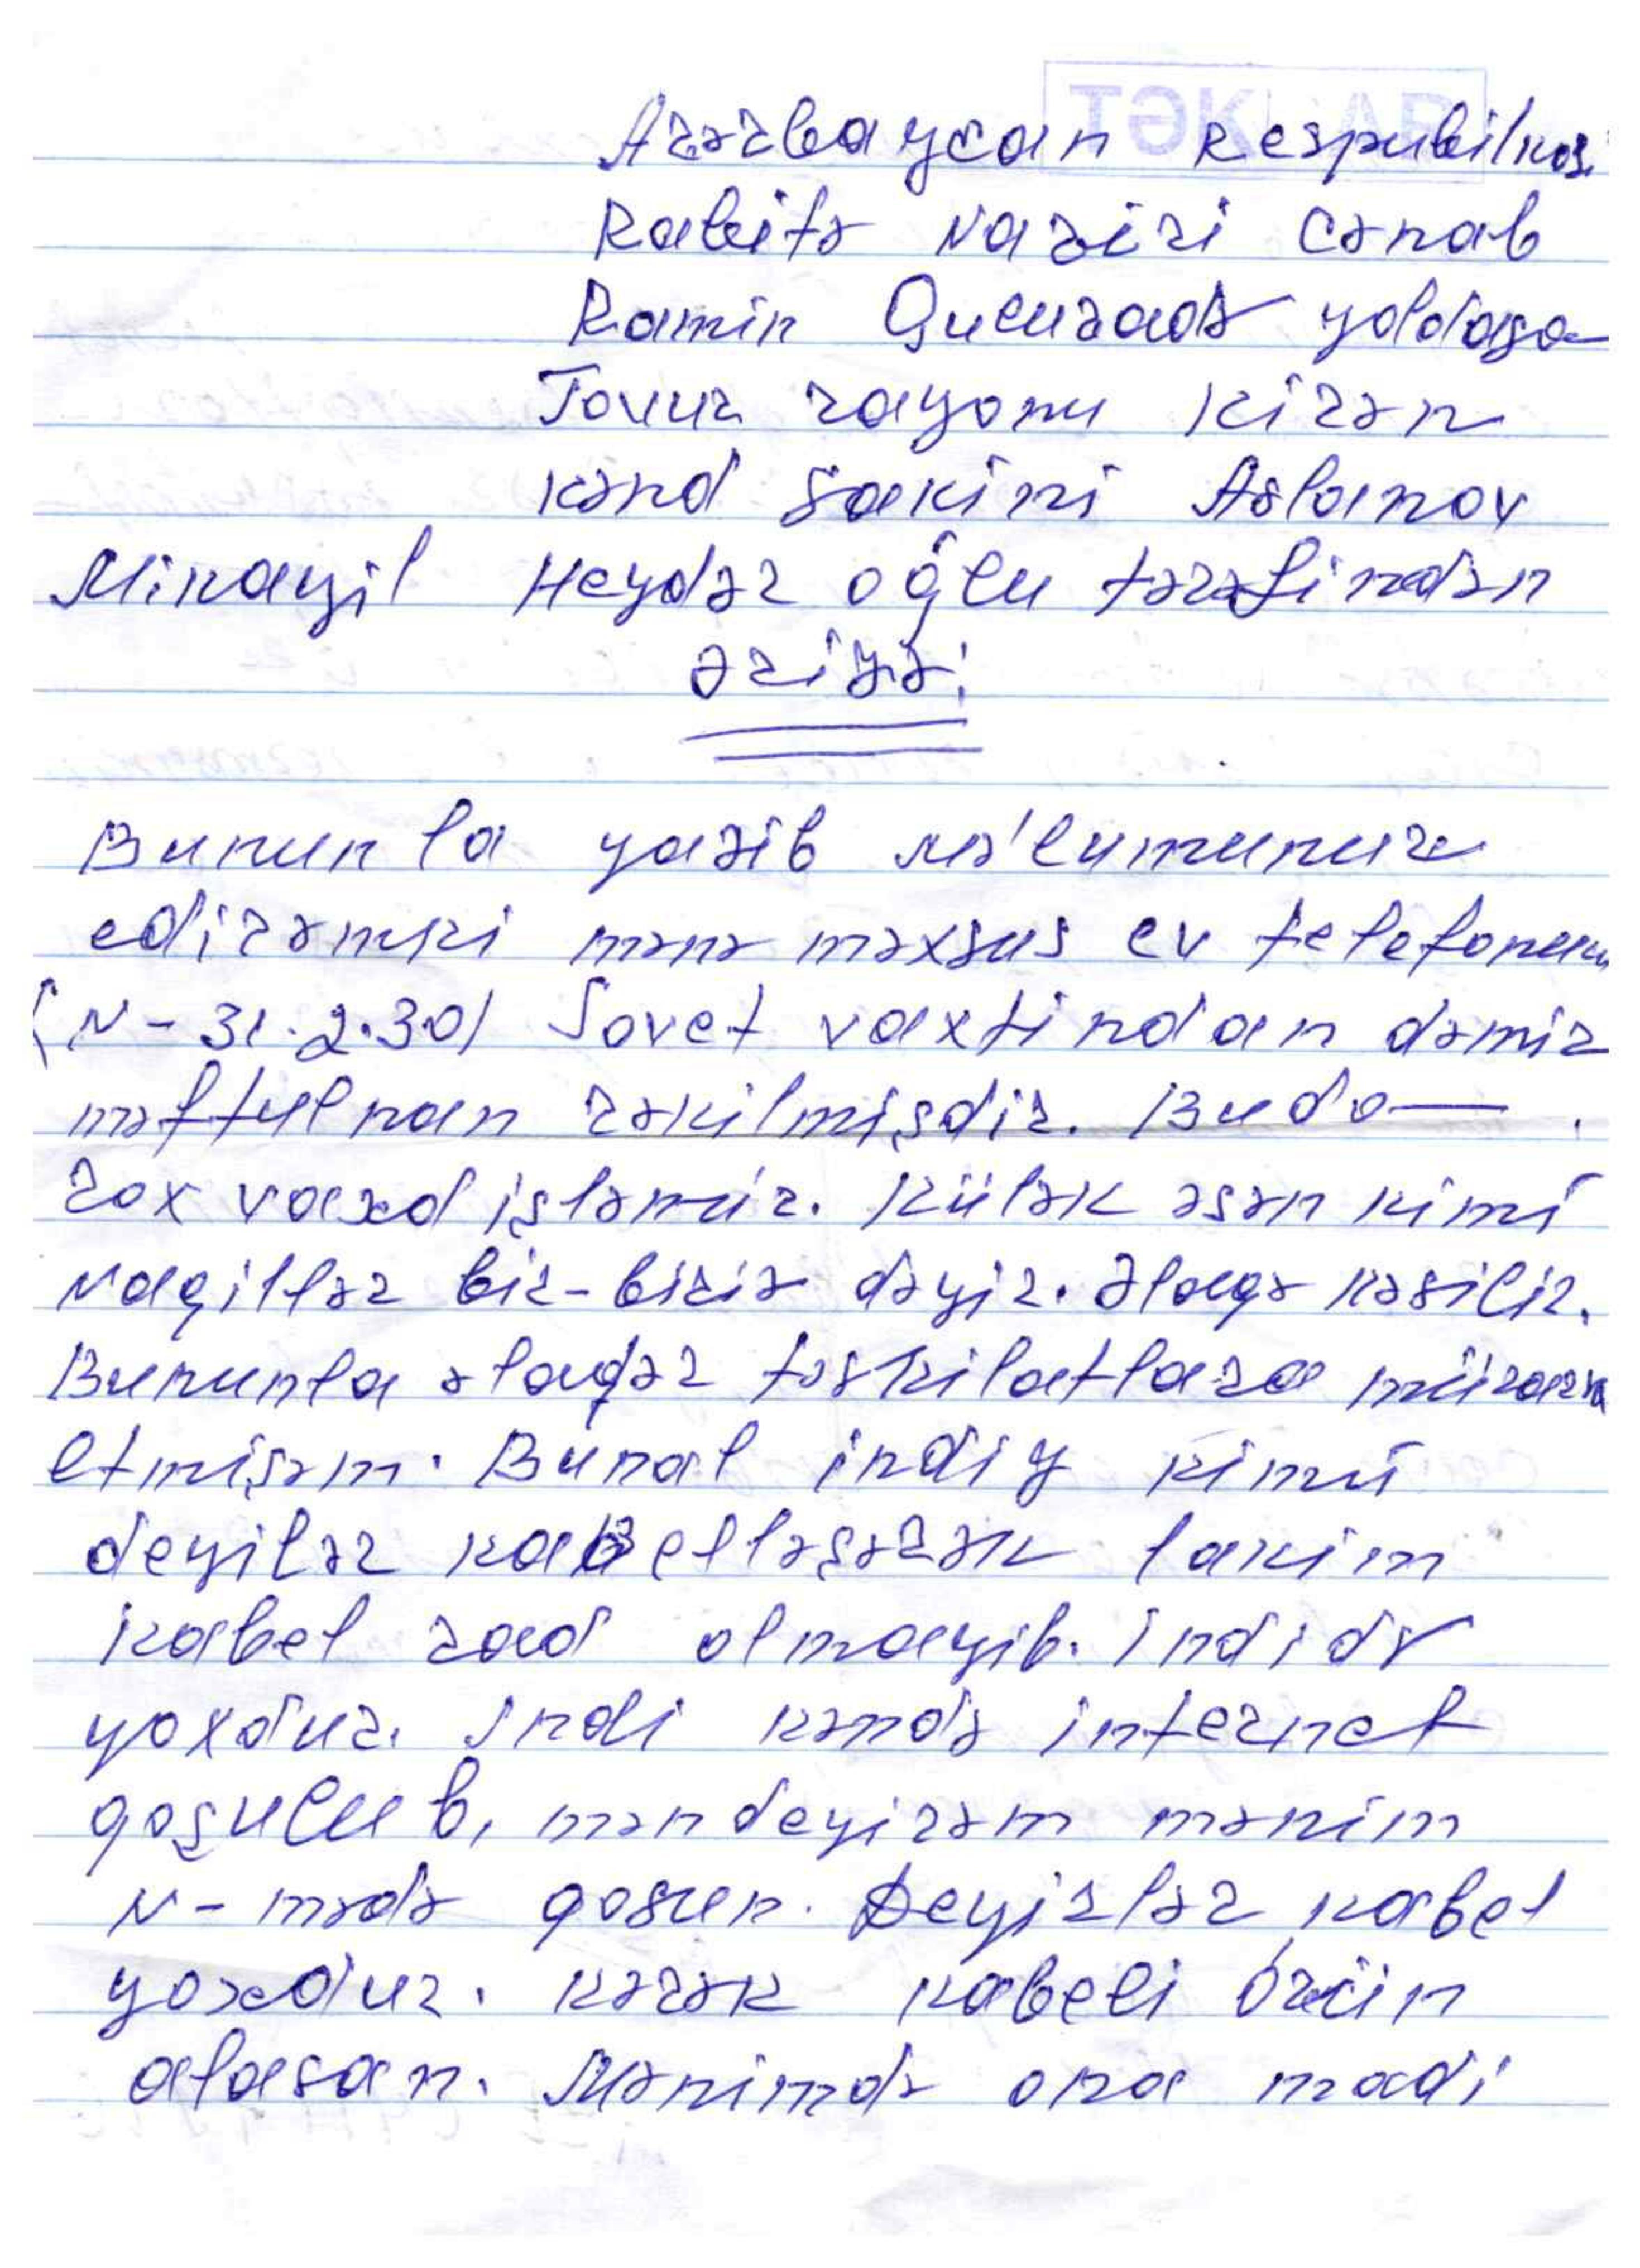 Azərbaycan Respubilkası
Rabitə Naziri Cənab
Ramin Quluzadə yoldaşa
Tovuz rayonu Kirən
kənd sakini Aslanov
Mikayil Heydər oğlu tərəfindən
ərizə.
Bununla yazib mə'lumunuz
edirəmki mənə məxsus ev telefonum
(N-31.2.30) Sovet vaxtindan dəmir
məftulnan çəkilmişdir. Buda
çox vaxd işləmir. Külək əsən kimi
naqillər bir-biriə dəyir. Əlaqə kəsilir.
Bununla əlaqər təşkilatlara müraciə
etmişəm. Bunal indiy kimi
deyilər kabelləşəcək lakin
kabel zad olmayib. İndidə
yoxdur. İndi kəndə internet
qoşulub, məndeyirəm mənim
N-mədə qosun. Deyirlər kabel
yoxdur. Kərək kabeli özün
alasan. Mənimdə ona madi